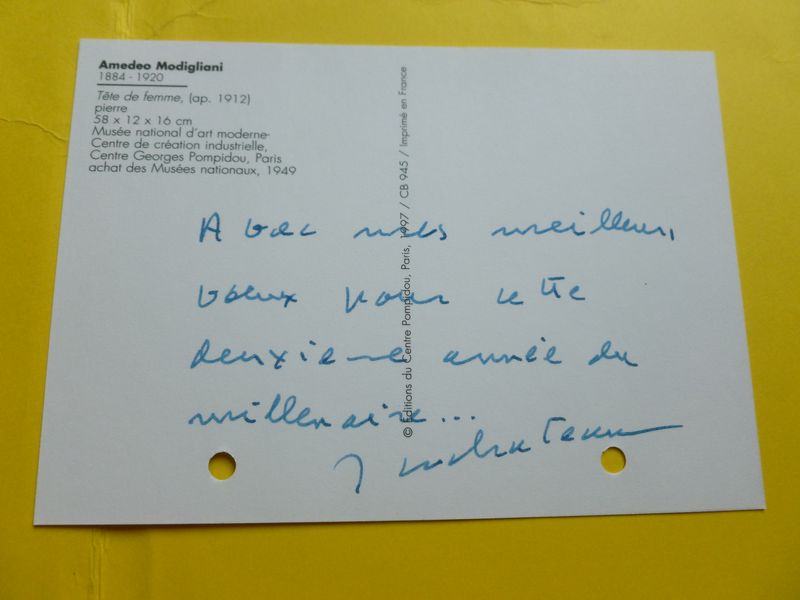 Amedeo Modigliani
1884 - 1920
Tête de femme, (ap. 1912)
pierre
58 x 12 x 16 cm
Musée national d'art moderne-
Centre de création industrielle,
Centre Georges Pompidou, Paris
achat des Musées nationaux, 1949
© Éditions du Centre Pompidou, Paris, 1997 / CB 945 / Imprimé en France
Avec mes meilleurs
voeux pour cette
deuxième année du
millenaire...